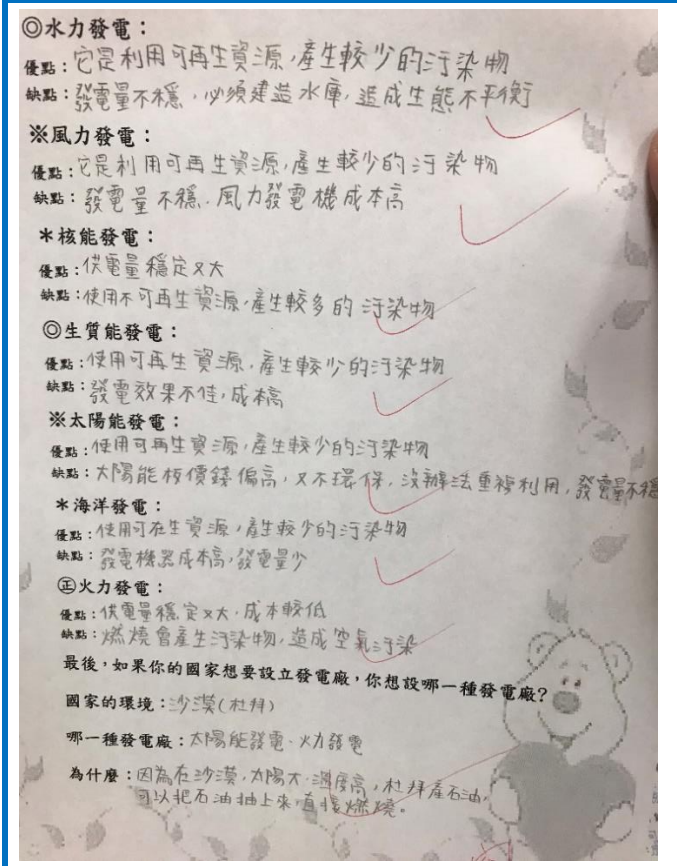 ◎水力發電：
優點：它是利用可再生資源，產生較少的汙染物
缺點：發電量不穩，必須建造水庫，造成生態不平衡
※風力發電：
優點：它是利用可再生資源，產生較少的汙染物
缺點：發電量不穩．風力發電機成本高
＊核能發電：
優點：供電量穩定又大
缺點：使用不可再生資源，產生較多的汙染物
◎生質能發電：
優點：使用可再生資源，產生較少的汙染物
缺點：發電效果不佳，成本高
※太陽能發電：
優點：使用可再生資源，產生較少的汙染物
缺點：太陽能板價錢偏高，又不環保，沒辦法重複利用，發電量不穩
＊海洋發電：
優點：使用可在生資源，產生較少的汙染物
缺點：發電機器成本高，發電量少
㊣火力發電：
優點：供電量穩定又大．成本較低
缺點：燃燒會產生汙染物，造成空氣汙染
最後，如果你的國家想要設立發電廠，你想設哪一種發電廠？
國家的環境：沙漠(杜拜)
哪一種發電廠：太陽能發電．火力發電
為什麼：因為在沙漠，太陽大．溫度高，杜拜產石油，
可以把石油抽上來，直接燃燒。